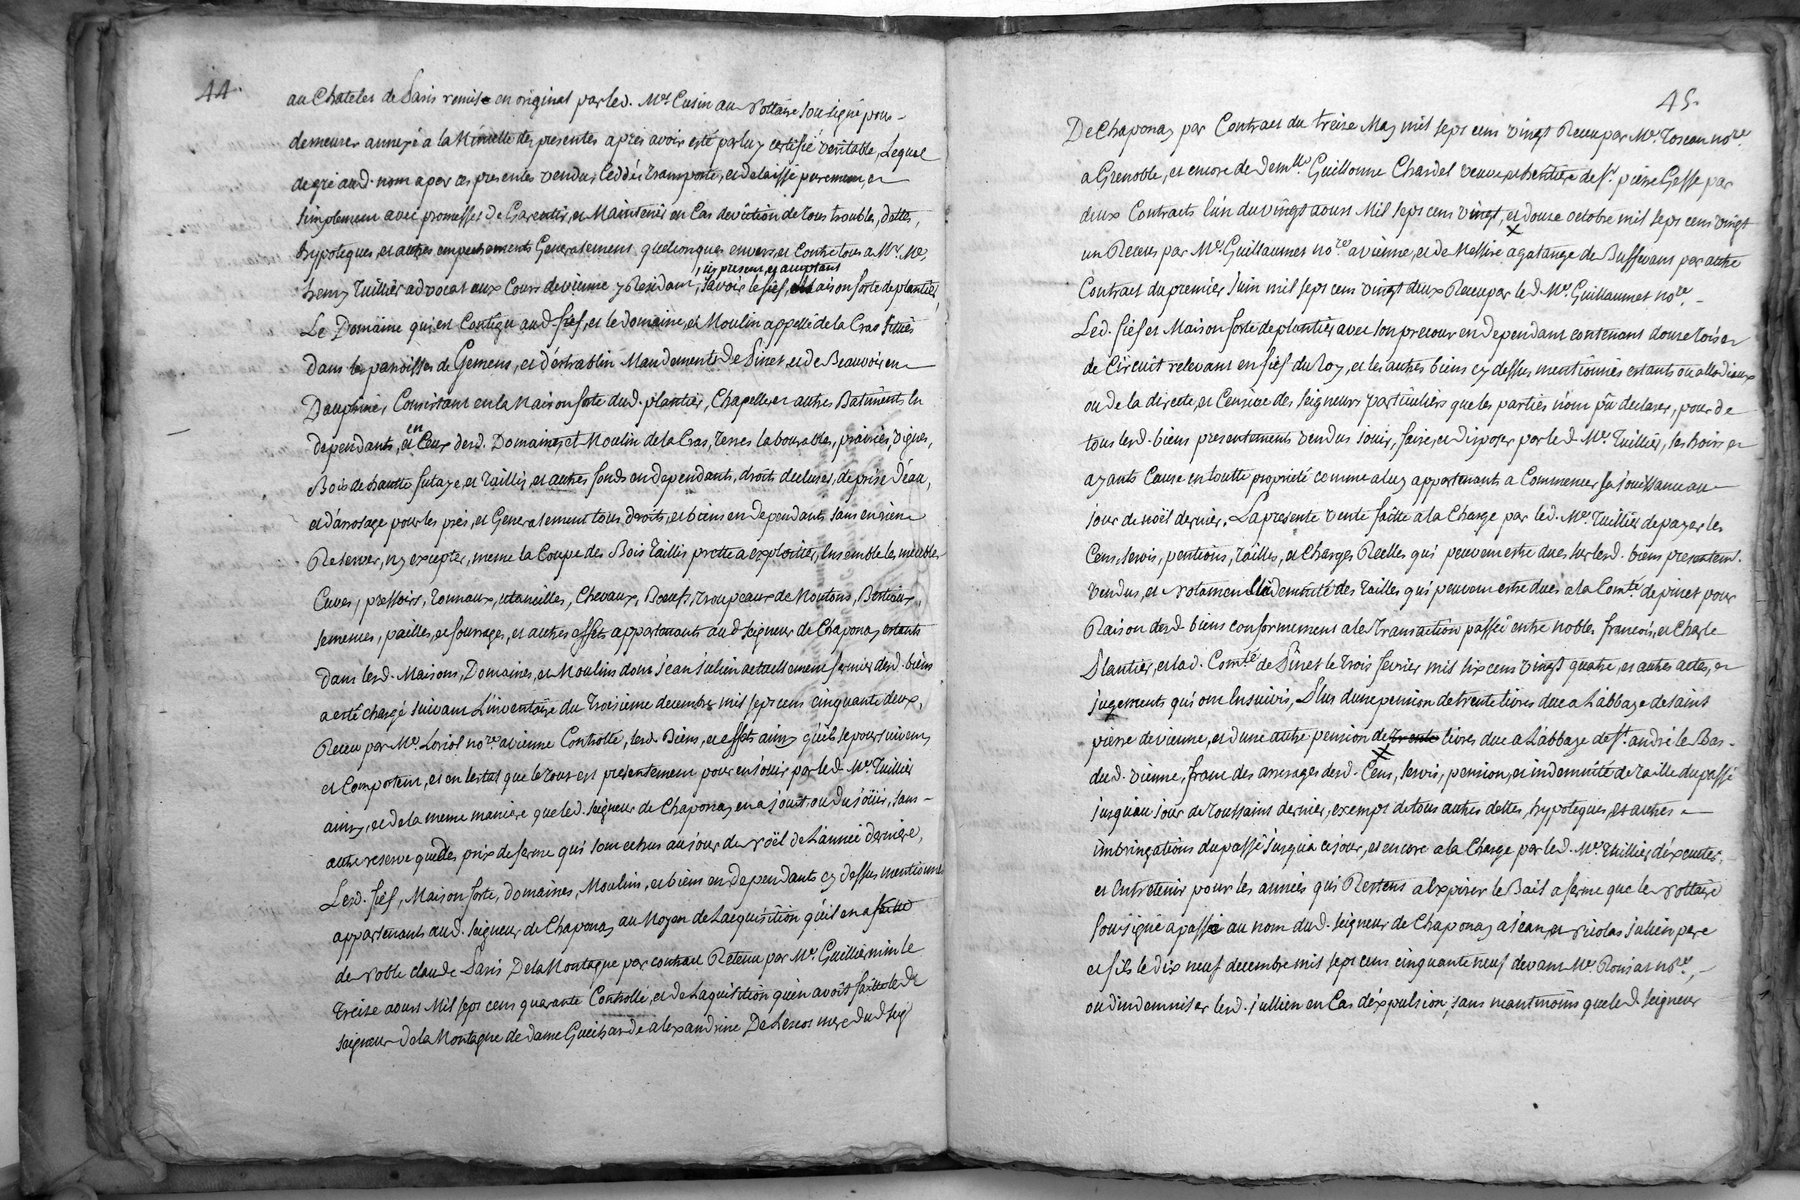 44.
au Chatelet de Paris remise en original par led. Mes Cusin au Nottaire sousigné pour
demeurer annexé a la Minutte des presentes apres avoir esté par luy certifié veritable, Lequel
de gré aud. nom a par ces presentes vendu, ceddé, transporté, et delaissé purement, et
simplement avec promesses de Garentir, et Maintenir en Cas deviction de tous troubles, dettes,
hypoteques, et autres empechements Generalement quelconques envers, et Contre tous a Mr. Me.
henry Tuillier advocat aux Cours de vienne y Residant, icy present, et acceptant
, savoir le fief, Maison forte de plantier,
Le Domaine qui est Contigu aud. fief, et le domaine, et Moulin appellé de la Cras situés
dans les parroisses de Gemens, et d'estrablin Mandements de Pinet, et de Beauvoir en
Dauphiné, Consistant en la Maison forte dud. plantier, Chapelle, et autres Batiments en
dependants, et en Ceux desd. Domaines, et Moulin de la Cras, terres labourables, prairies, vignes,
Bois de hautte futaye, et Taillis, et autres fonds en dependants, droits decluses, de prise d'eau,
et d'arrosage pour les prés, et Generalement tous droits, et biens en dependants sans en rien
Reserver, ny excepter, meme la Coupe des Bois Taillis prette a exploitter, Ensemble les meubles
Cuves, pressoirs, Tonnaux, utanciles, Chevaux, Boeufs, Troupeaux de Moutons, Bestiaux,
semences, pailles, et fourrages, et autres effets appartenants aud. seigneur de Chaponay estants
dans lesd. Maisons, Domaines, et Moulins dont jean julien actuellement fermier desd. biens
a esté chargé suivant L'inventaire du Troisieme decembre mil sept cens cinquante deux,
Receu par Me. Loriol nore. a vienne Controllé, lesd. Biens, et effets ainsy quils se poursuivent,
et Comportent, et en l'estat que le tout est presentement pour en jouir par led. Me. Tuillier
ainsy, et de la meme maniere que led. seigneur de Chaponay en a jouit, ou du joüir, sans
autre reserve que des prix de ferme qui sont echus au jour de Noël de L'année derniere,
Lesd. fief, Maison forte, domaines, Moulins, et biens en dependants cy dessus mentionnés
appartenants aud. seigneur de Chaponay au Moyen de Lacquisition qu'il en a faitte
de Noble claude Paris De la Montagne par contract Receu par Me. Guillermin le
treize aoust Mil sept cens quarante Controllé, et de L'aquisition quen avoit faitte led.
seigneur de la Montagne de dame alexandrine De Lescot mere dud. seigr
45.
De Chaponay par Contract du treize May mil sept cens vingt Receu par Me. Toscan nore.
a Grenoble, et encore de demlle Guillonne Chardel veuve, et heritiere de Sr. pierre Gesse par
deux Contracts l'un du vingt aoust Mil sept cens vingt, et douze octobre mil sept cens vingt
un Receus par Me. Guillaumet nore. a vienne, et de Messire agatange de Buffevant par autre
Contract du premier Juin mil sept cens vingt deux Receu par led. Me. Guillaumet nore.
Led. fief et Maison forte de plantier avec son precour en dependant contenant douze toises
de Circuit relevant en fief du Roy, et les autres biens cy dessus mentionnés estants ou allodiaux
ou de la directe, et Censive des seigneurs particuliers que les parties n'ont pû declarer, pour de
tous lesd. biens presentements vendus jouir, faire, et disposer par led. Me. Tuillier, ses hoirs et
ayants Cause en toutte proprieté comme a luy appartenants a Commencer sa jouissance au
jour de noël dernier, La presente vente faitte a la Charge par led. Me. Tuillier de payer les
Cens, servis, pentions, tailles, et Charges Reelles qui peuvent estre dues sur lesd. biens presentemt.
vendus, et Notament L'indemnité des Tailles qui peuvent estre dues a la Comté. de pinet pour
Raison desd. biens conformement a la Transaction passée entre nobles francois, et Charle
Plantier, et lad. Comté. de Pinet le trois fevrier mil six cens vingt quatre, et autres actes, et
jugements qui ont Ensuivis, Plus dune pension de trente livres due a L'abbaye de saint
pierre de vienne, et d'une autre pension de trente livres due a L'abbaye de St. andré le Bas
dud. vienne, franc des arrerages desd. Cens, servis, pension, et indemnité de Taille du passé
jusquau jour de Toussaint dernier, exempt de tous autres dettes, hypoteques, et autres
imbringations du passé jusqu'a ce jour, et encore a la Charge par led. Me. Tuillier d'éxecuter,
et Entretenir pour les années qui Restent a expirer le Bail a ferme que le Nottaire
sousigné a passé au nom dud. seigneur de Chaponay a jean, et Nicolas julien pere
et fils le dix neuf decembre mil sept cens cinquante neuf devant Me. Ronjat nore.,
ou d'indemniser lesd. jullien en Cas d'expulsion, sans neantmoins que led. seigneur